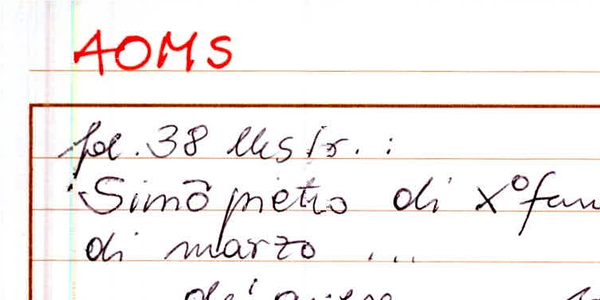 AOMS
fol. 38 Ms fr. :
Simõ pietro di Xºfan
di marzo ...